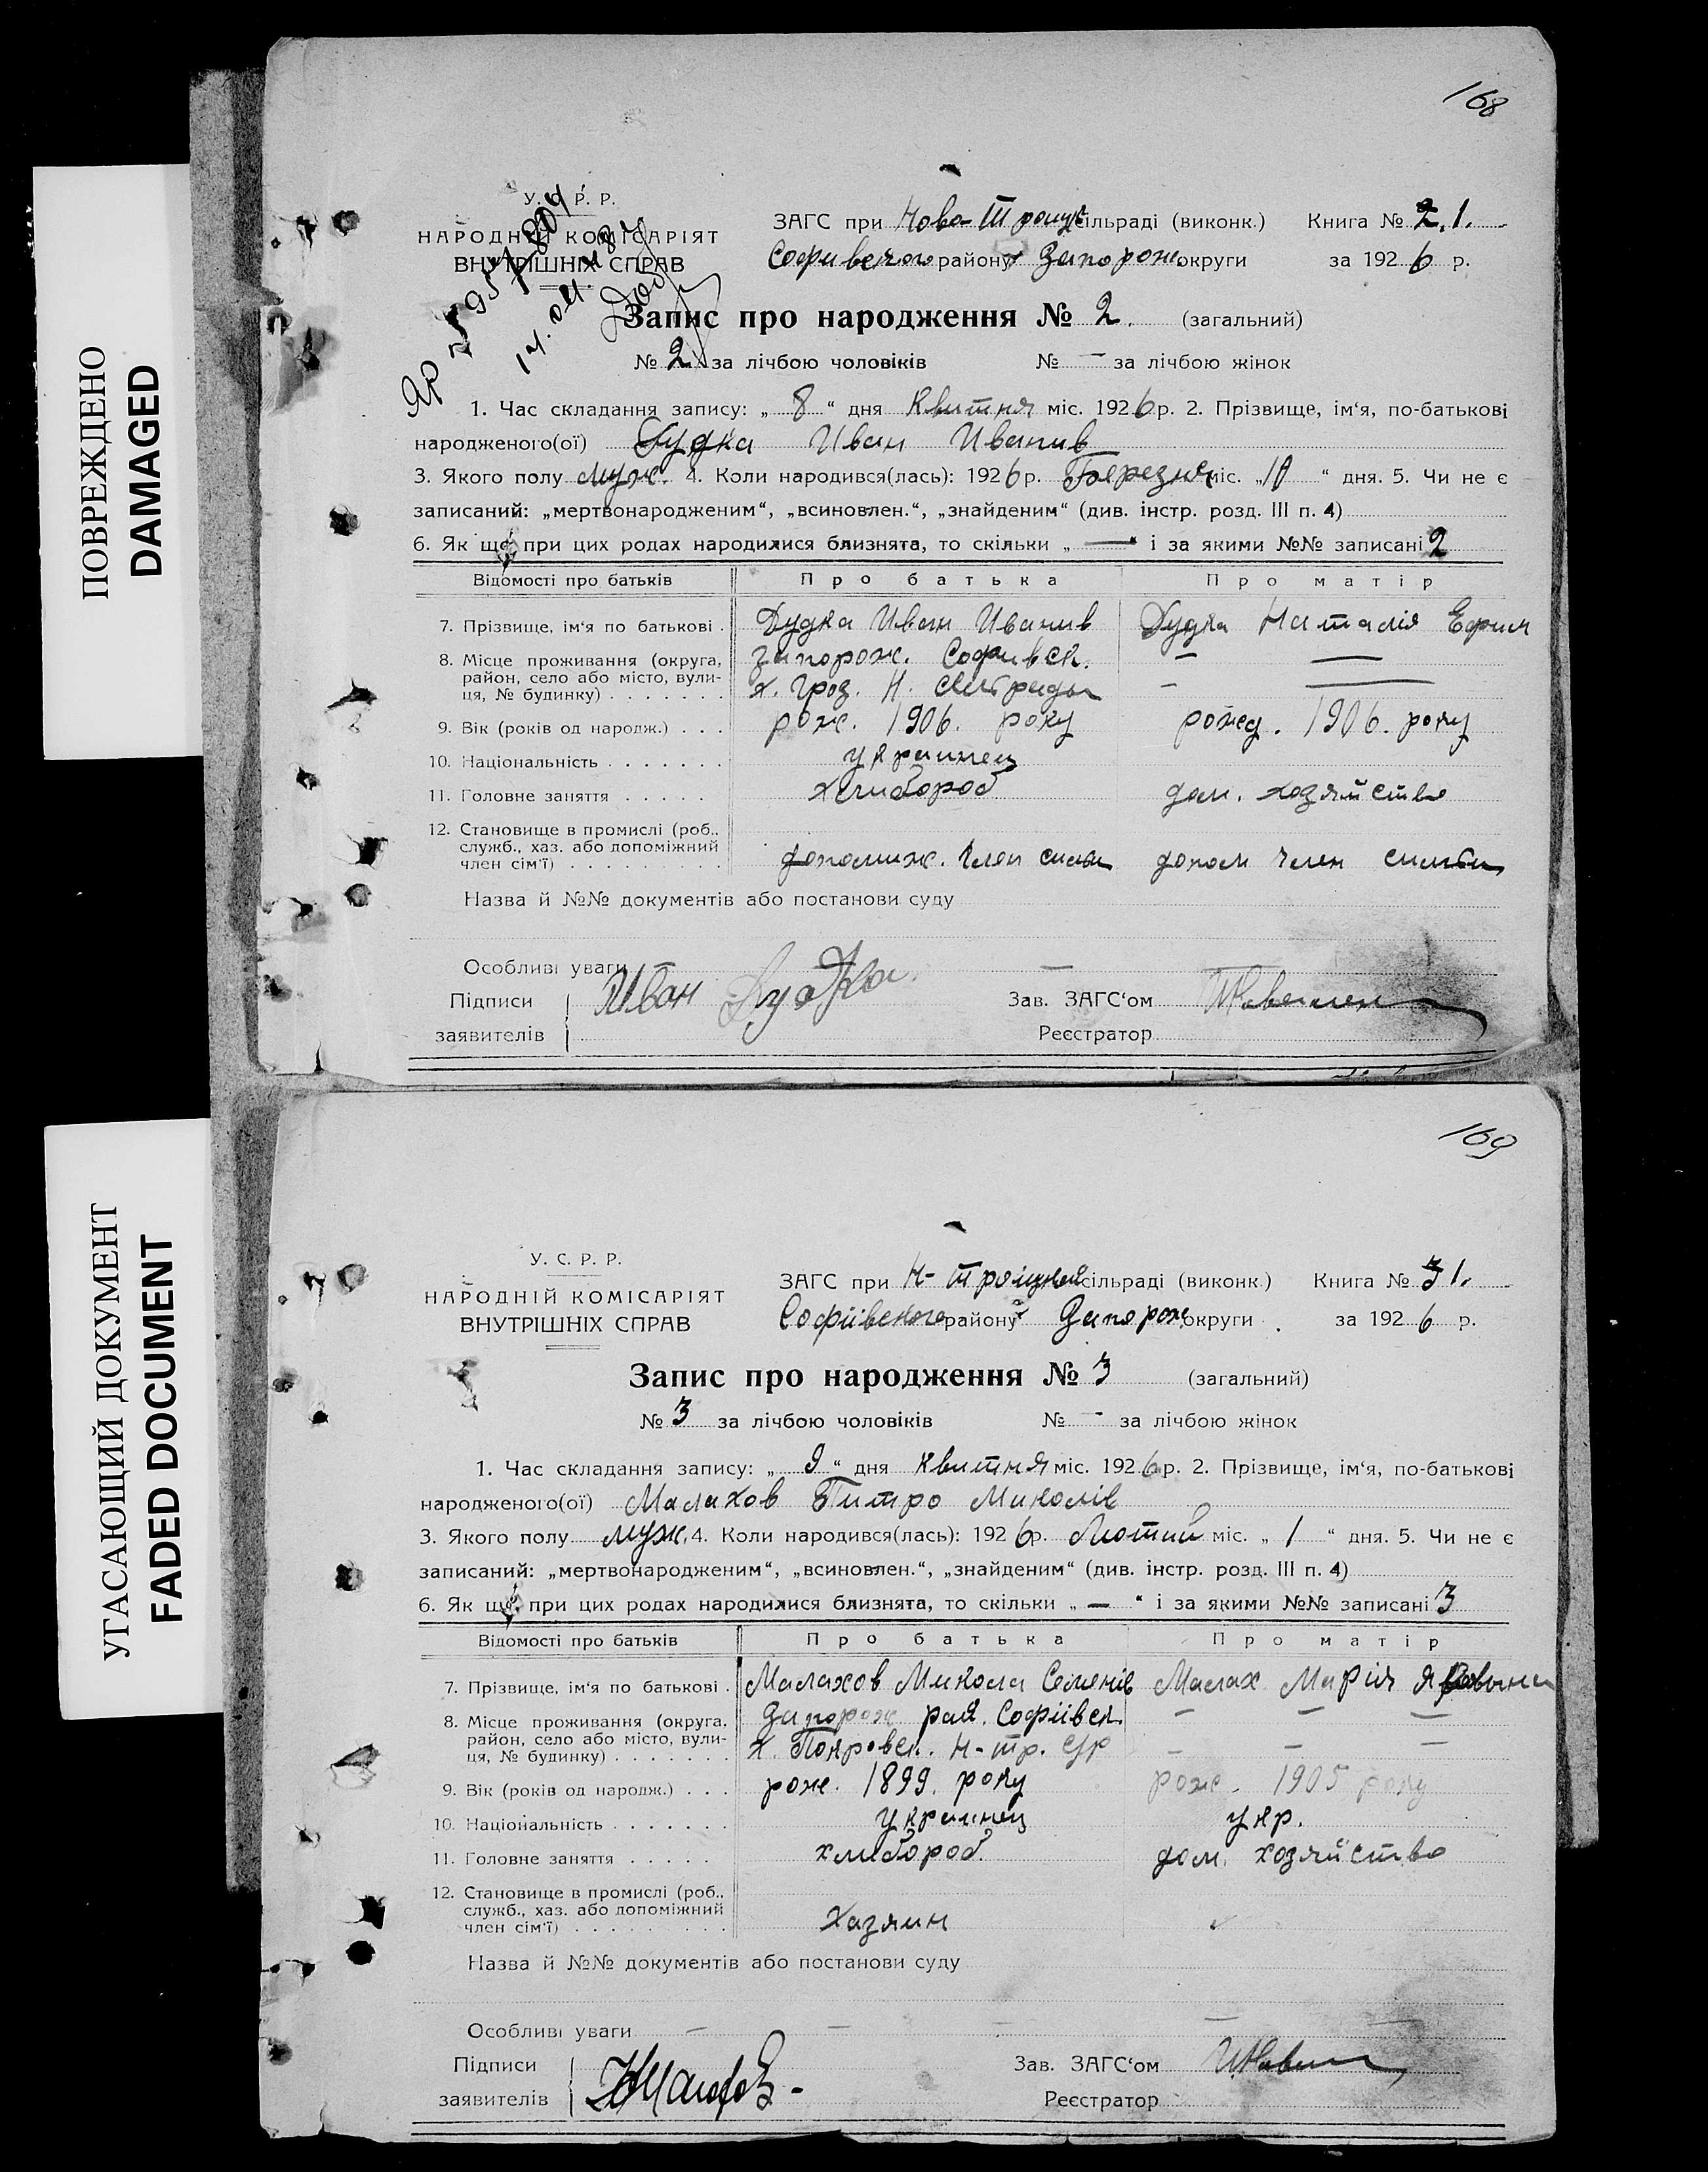 ПОВРЕЖДЕНО
DAMAGED
168
У. С. Р. Р.
НАРОДНІЙ КОМІСАРІЯТ
ВНУТРІШНІХ СПРАВ
14. 04. 87
ЗАГС при Ново-Троицк сільраді (виконк.) Книга № 2.1.
Софивского району Запорож. округи за 1926 р.
Запис про народження № 2. (загальний)
№ 2 за лічбою чоловіків № — за лічбою жінок
1. Час складання запису: „ 8 “ дня Квитня міс. 1926 р. 2. Прізвище, ім‘я, по-батькові
народженого(ої) Дудка Иван Иванив
3. Якого полу муж. 4. Коли народився(лась): 1926 р. Березня міс. „ 10 “ дня. 5. Чи не є
записаний: „мертвонародженим“, „всиновлен.“, „знайденим“ (див. інстр. розд. III п. 4)
6. Як що при цих родах народилися близнята, то скільки „ — “ і за якими №№ записані 2
Відомості про батьків Про батька Про матір
7. Прізвище, ім‘я по батькові . Дудка Иван Иванив Дудка Наталія Ефим
8. Місце проживання (округа, запорож. Софивск. — —
район, село або місто, вули-
ця, № будинку) . . . . . . . х. Гроз. Н. — —
9. Вік (років од народж.) . . . рож. 1906. року рожд. 1906. року
10. Національність . . . . . . . украинец
11. Головне заняття . . . . . хлибороб дом. хозяйство
12. Становище в промислі (роб.,
служб., хаз. або допоміжний
член сім‘ї) . . . . . . . . . допомиж. член симьи допом член симьи
Назва й №№ документів або постанови суду
Особливі уваги —
Підписи Иван Дудка Зав. ЗАГС‘ом
заявителів Реєстратор
УГАСАЮЩИЙ ДОКУМЕНТ
FADED DOCUMENT
169
У. С. Р. Р.
НАРОДНІЙ КОМІСАРІЯТ
ВНУТРІШНІХ СПРАВ
ЗАГС при Н-Троицкой сільраді (виконк.) Книга № 31.
Софіївского району Запорож. округи за 1926 р.
Запис про народження № 3 (загальний)
№ 3 за лічбою чоловіків № - за лічбою жінок
1. Час складання запису: „ 9 “ дня Квитня міс. 1926 р. 2. Прізвище, ім‘я, по-батькові
народженого(ої) Малахов Питро Миколів
3. Якого полу муж. 4. Коли народився(лась): 1926 р. Лютий міс. „ 1 “ дня. 5. Чи не є
записаний: „мертвонародженим“, „всиновлен.“, „знайденим“ (див. інстр. розд. III п. 4)
6. Як що при цих родах народилися близнята, то скільки „ — “ і за якими №№ записані 3
Відомості про батьків Про батька Про матір
7. Прізвище, ім‘я по батькові . Малахов Микола Семенів Малах Марія
8. Місце проживання (округа, Запорож рай. Софіївск. — — —
район, село або місто, вули-
ця, № будинку) . . . . . . . х. Покровск. Н-тр. с/р — — —
9. Вік (років од народж.) . . . рож. 1899. року рож. 1905 року
10. Національність . . . . . . . украинец укр.
11. Головне заняття . . . . . хлибороб. дом. хозяйство
12. Становище в промислі (роб.,
служб., хаз. або допоміжний
член сім‘ї) . . . . . . . . . хазяин
Назва й №№ документів або постанови суду
Особливі уваги — — — — —
Підписи Зав. ЗАГС‘ом
заявителів Реєстратор